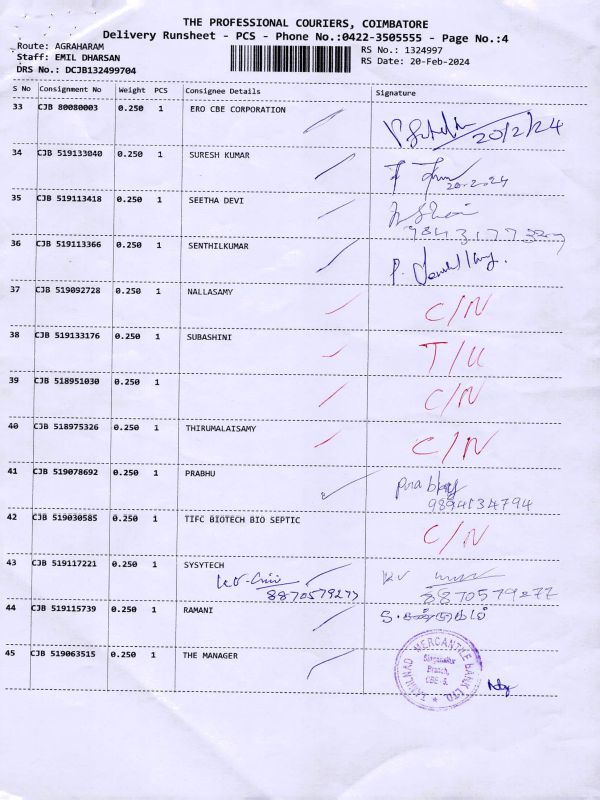 THE PROFESSIONAL COURIERS, COIMBATORE
Delivery Runsheet - PCS - Phone No.:0422-3505555 - Page No.:4
Route: AGRAHARAM
RS No.: 1324997
Staff: EMIL DHARSAN
RS Date: 20-Feb-2024
DRS No.: DCJB132499704
S No Consignment No Weight PCS Consignee Details Signature
33 CJB 80080003 0.250 1 ERO CBE CORPORATION
20/2/24
34 CJB 519133040 0.250 1 SURESH KUMAR
20.2.24
35 CJB 519113418 0.250 1 SEETHA DEVI
36 CJB 519113366 0.250 1 SENTHILKUMAR
37 CJB 519092728 0.250 1 NALLASAMY C/N
38 CJB 519133176 0.250 1 SUBASHINI T/U
39 CJB 518951030 0.250 1 C/N
40 CJB 518975326 0.250 1 THIRUMALAISAMY C/N
41 CJB 519078692 0.250 1 PRABHU
9894134794
42 CJB 519030585 0.250 1 TIFC BIOTECH BIO SEPTIC C/N
43 CJB 519117221 0.250 1 SYSYTECH
8870579277 8870579277
44 CJB 519115739 0.250 1 RAMANI
45 CJB 519063515 0.250 1 THE MANAGER
TAMILNAD MERCANTILE BANK LTD.
Singanallur
Branch,
CBE-5.